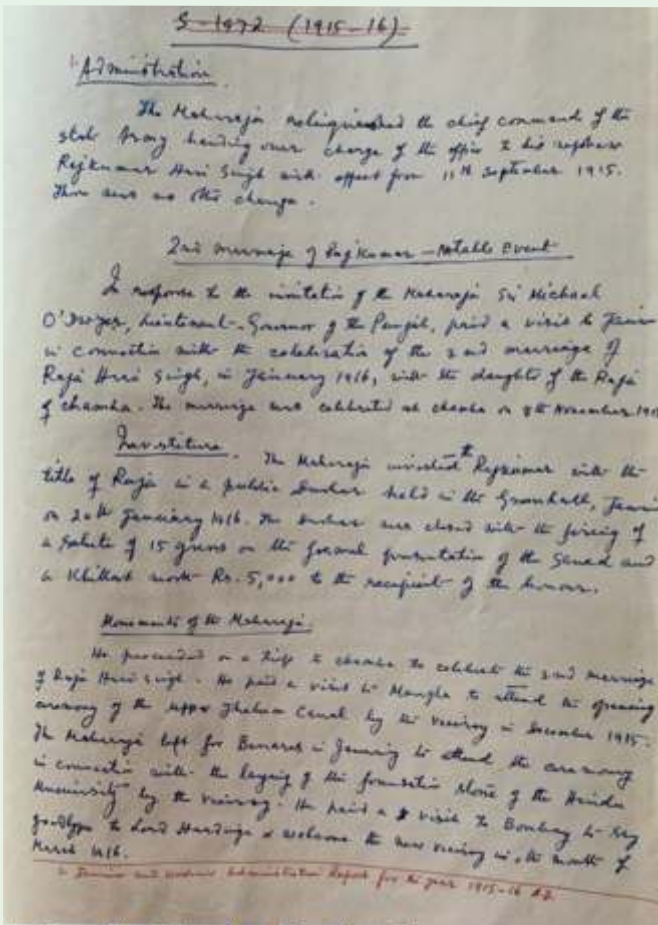 S-1972 (1915-16)
1. Administration
The Maharaja relinquished the chief command of the
state Army handing over charge of the office to his nephew
Rajkumar Hari Singh with effect from 11th September 1915.
There was no other change.
2nd marriage of Rajkumar - Notable Event
In response to the invitation of the Maharaja Sir Michael
O'Dwyer, Lieutenant-Governor of the Punjab, paid a visit to Jammu
in connection with the celebration of the 2nd marriage of
Raja Hari Singh, in January 1916, with the daughter of the Raja
of Chamba. The marriage was celebrated at Chamba on 8th November 1915
Investiture. The Maharaja invested the Rajkumar with the
title of Raja in a public Durbar held in the , Jammu
on 20th January 1916. The Durbar was closed with the firing of
a salute of 15 guns on the formal presentation of the Sanad and
a Khillat worth Rs. 5,000 to the recipient of the honour.
Movements of the Maharaja.
He proceeded on a trip to Chamba to celebrate the 2nd marriage
of Raja Hari Singh. He paid a visit to Mangla to attend the opening
ceremony of the Upper Jhelum Canal by the Viceroy in December 1915.
The Maharaja left for Benares in January to attend the ceremony
in connection with the laying of the foundation stone of the Hindu
University by the Viceroy. He paid a visit to Bombay to say
goodbye to Lord Hardinge & welcome the new Viceroy in the month of
March 1916.
1. Jammu and Kashmir Administration Report for the year 1915-16 A.D.